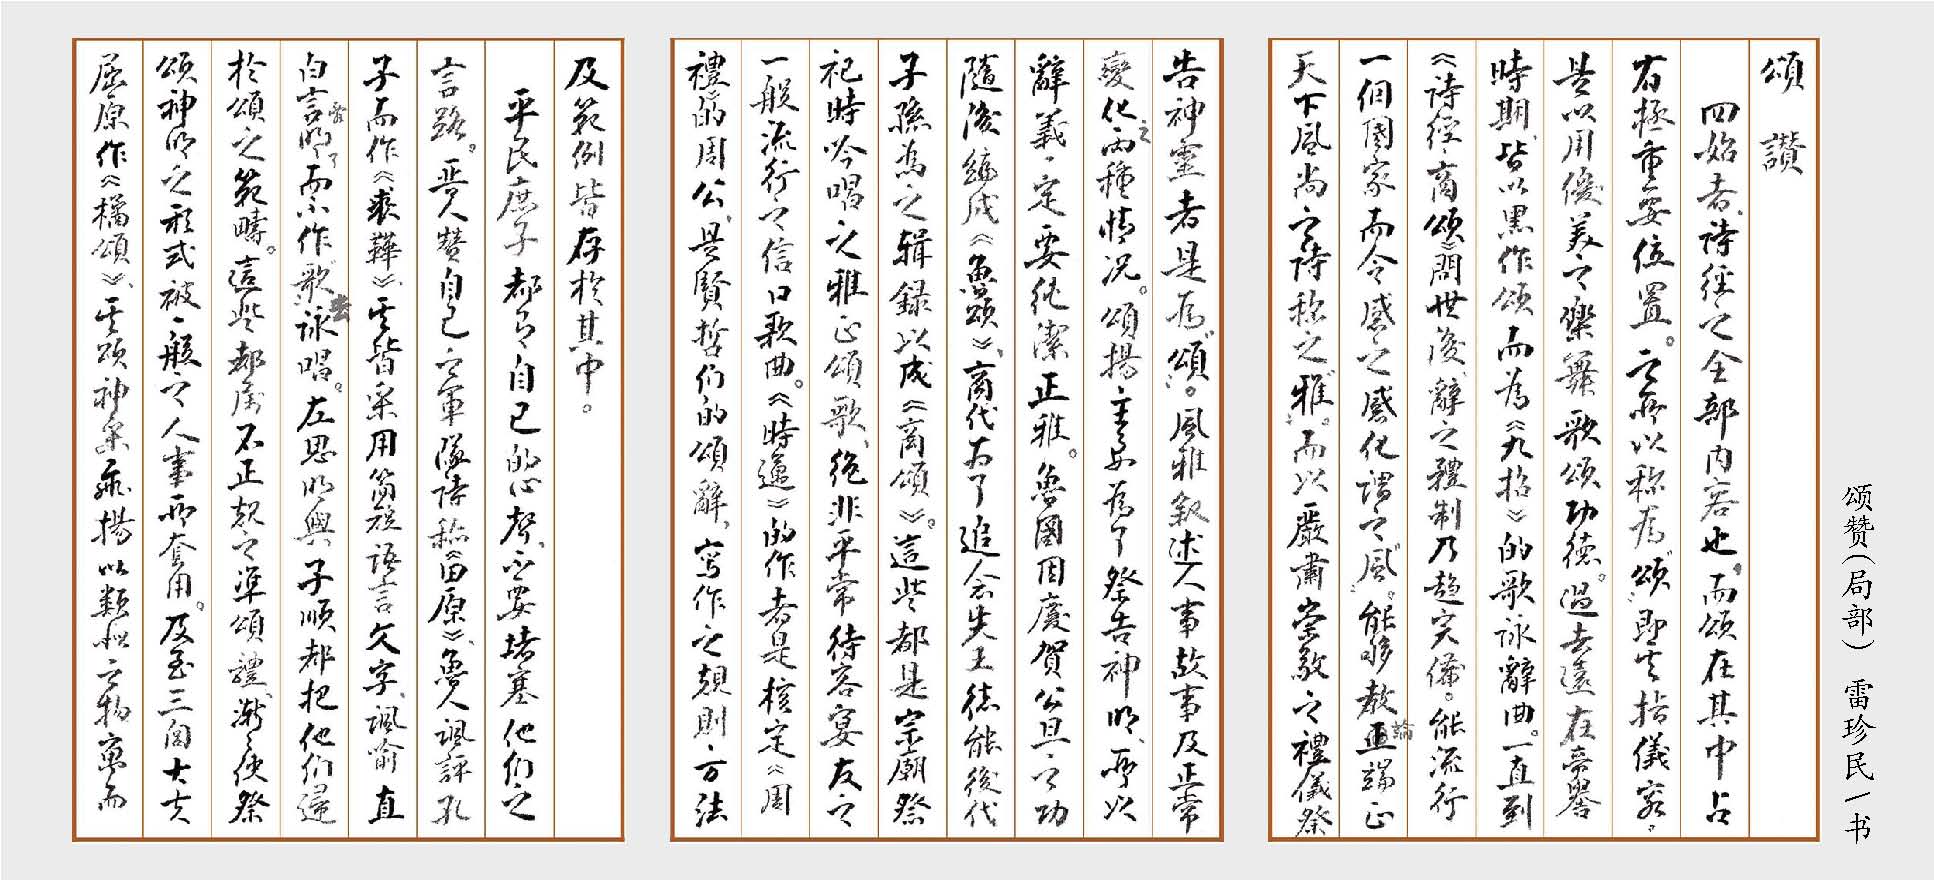 頌讚
四始者，詩經之全部内容也，而頌在其中占
有極重要位置。之所以称為“頌”，即告指儀容。
是以用優美之樂舞歌頌功德。過去遠在帝嚳
時期，皆以黑作頌而為《九招》的歌詠辭曲。一直到
《詩經·商頌》問世後，辭之禮制乃趨完備。能流行
一個國家而令感之感化謂之“風”。能够教正論端正
天下風尚之詩称之“雅”。而以嚴肅崇敬之禮儀祭
告神靈者是為“頌”。風雅叙述人事故事及正常
變化之兩種情况。頌揚主要為了祭告神明，所以
辭義一定要純潔正雅。魯國因慶賀公旦之功
隨後編成《魯頌》，商代為了追念先王德能後代
子孫為之辑録以成《商頌》。這些都是宗廟祭
祀時吟唱之雅正頌歌，絶非平常待客宴友之
一般流行之信口歌曲。《時邁》的作者是核定《周
禮》的周公，是賢哲们的頌辭，寫作之規則方法
及範例皆存於其中。
平民庶子都有自己的心聲，不要堵塞他们之
言路。晋人赞自己之軍隊詩称《田原》，魯人諷評孔
子而作《裘鞸》，其皆采用简短语言文字，諷喻直
白言明了而不作歌去詠唱。左思明與子順都把他们歸
於頌之範疇。這些都属不正規之準頌體，漸漸使祭
頌神明之形式被一般之人事所套用。及至三闾大夫
屈原作《橘頌》，其頌神采飛揚以類似之物寓而
颂赞（局部） 雷珍民/书